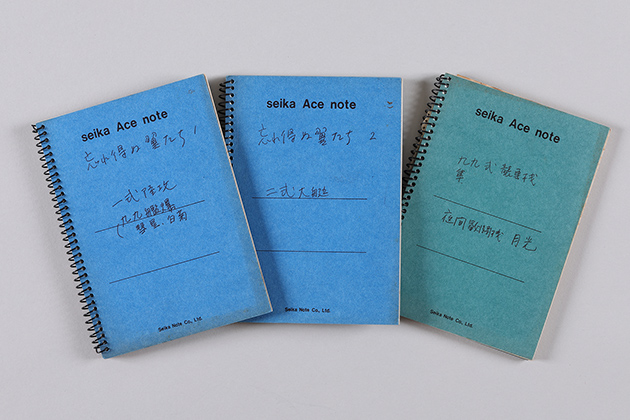 seika Ace note
忘れ得ぬ翼たち 1
一式陸攻
九九艦爆
彗星・白菊
Seika Note Co., Ltd.
seika Ace note
忘れ得ぬ翼たち 2
二式大艇
Seika Note Co., Ltd.
seika Ace note
九九式襲撃機
夜間戦闘機 月光
Seika Note Co., Ltd.